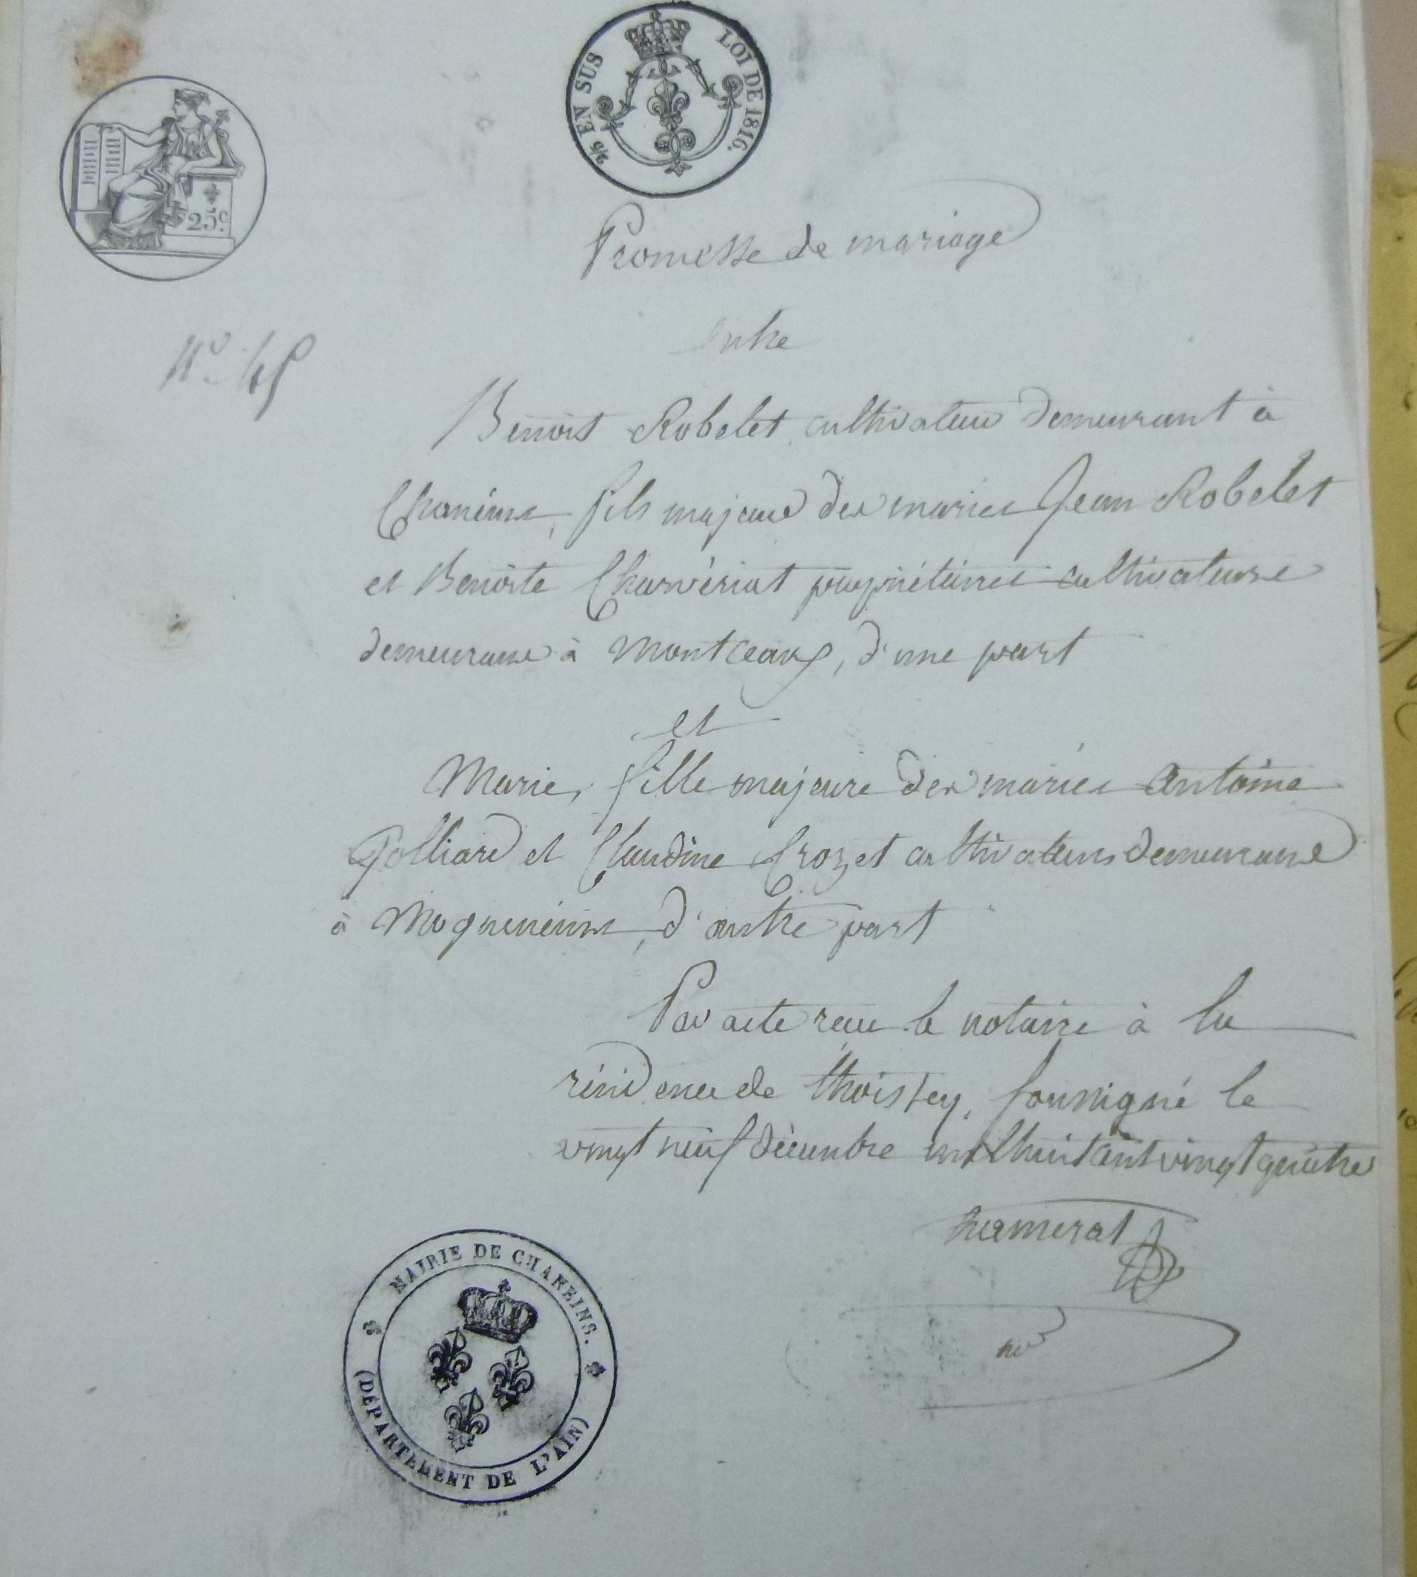 EN SUS
LOI DE 1816.
25 c.
Promesse de mariage
N°. 45
entre
Benoit Robelet, cultivateur demeurant à
Chaneins, fils majeur des mariés Jean Robelet
et Benoite Charvériat propriétaires cultivateurs
demeurant à Montceaux, d'une part
et
Marie, fille majeure des mariés Antoine
Golliard et Claudine Crozet cultivateurs demeurant
à Mogneneins, d'autre part
Par acte reçu le notaire à la
résidence de Thoissey, soussigné le
vingt neuf décembre mil huit cent vingt quatre
MAIRIE DE CHANEINS.
(DÉPARTEMENT DE L'AIN)